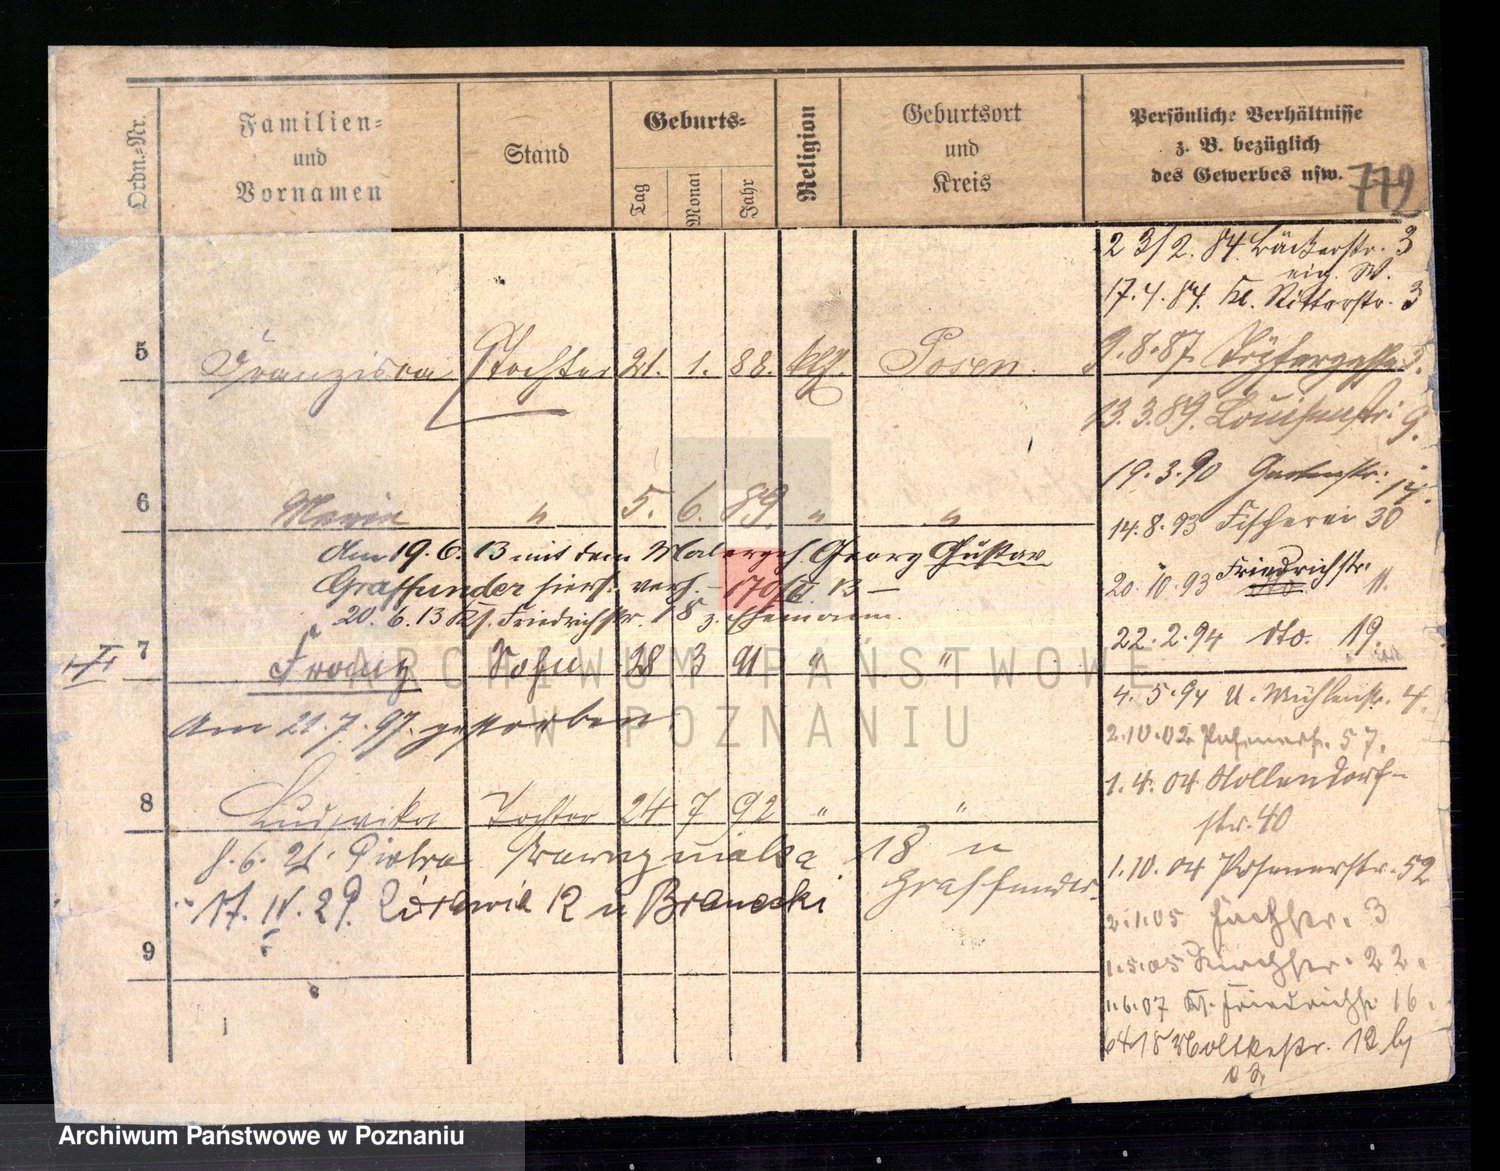 Ordn.-Nr.
Familien-
und
Vornamen
Stand
Geburts-
Tag
Monat
Jahr
Religion
Geburtsort
und
Kreis
Persönliche Verhältnisse
z. B. bezüglich
des Gewerbes usw.
712
23/2. 84. Bäckerstr. 3
17.4.84. Kl. Ritterstr. 3
5 Franzisca Tochter 21. 1. 88. kth. Posen
9.8.87
13.3.89. Louisenstr. 9.
19.3.90 Gartenstr. 14.
6 Maria " 5. 6. 89. " "
14.8.93 Fischerei 30
Am 19.6.13 mit dem Malergeh. Georg Gustav
Graffunder hiers. verh. – 170/6. 13 –
20.10.93 Friedrichstr. 11.
20.6.13 Kl. Friedrichstr. 18 z. Ehemann.
22.2.94 dto. 19.
7 Franz Sohn 28 3 91 " "
4.5.94 U. Mühlenstr. 4.
Am 21.7.97. gestorben
2.10.02 Posenerstr. 57.
1.4.04 Hollendorf-
str. 40
8 Ludwika Tochter 24 7 92 " "
1.10.04 Posenerstr. 52
f. 6. 21. Piotra Wawrzyniaka 18 u
Graffunder
17. IV. 29. 12 u Branecki
2.1.05 3
9
1.5.05 22.
1.6.07 Kl. Friedrichstr. 16.
Moltkestr. 12
ARCHIWUM PAŃSTWOWE
W POZNANIU
Archiwum Państwowe w Poznaniu